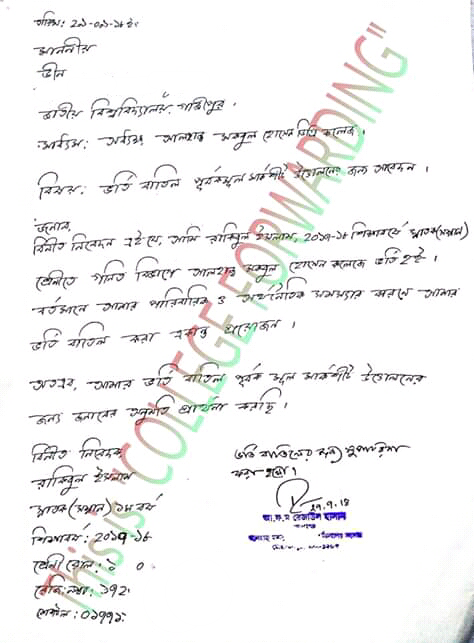 তারিখ: ২৯-০৯-১৮ ইং
মাননীয়
ডীন
জাতীয় বিশ্ববিদ্যালয়, গাজীপুর।
মাধ্যম: অধ্যক্ষ, আলহাজ্ব মকবুল হোসেন ডিগ্রি কলেজ।
বিষয়: ভর্তি বাতিল পূর্বক মূল মার্কশীট উত্তোলনের জন্য আবেদন।
জনাব,
বিনীত নিবেদন এই যে, আমি রাকিবুল ইসলাম, ২০১৭-১৮ শিক্ষাবর্ষে স্নাতক (সম্মান)
শ্রেণীতে গণিত বিভাগে আলহাজ্ব মকবুল হোসেন কলেজে ভর্তি হই।
বর্তমানে আমার পারিবারিক ও অর্থনৈতিক সমস্যার কারণে আমার
ভর্তি বাতিল করা একান্ত প্রয়োজন।
অতএব, আমার ভর্তি বাতিল পূর্বক মূল মার্কশীট উত্তোলনের
জন্য জনাবের অনুমতি প্রার্থনা করছি।
বিনীত নিবেদক
রাকিবুল ইসলাম
স্নাতক (সম্মান) ১ম বর্ষ
শিক্ষাবর্ষ: ২০১৭-১৮
শ্রেণী রোল: ১ ০
রেজি: নম্বর: ১৭২
মোবাইল: ০১৭৭১
ভর্তি বাতিলের জন্য সুপারিশ
করা হলো।
29.9.18
আ.ফ.ম রেজাউল হাসান
This is "COLLEGE FORWARDING"